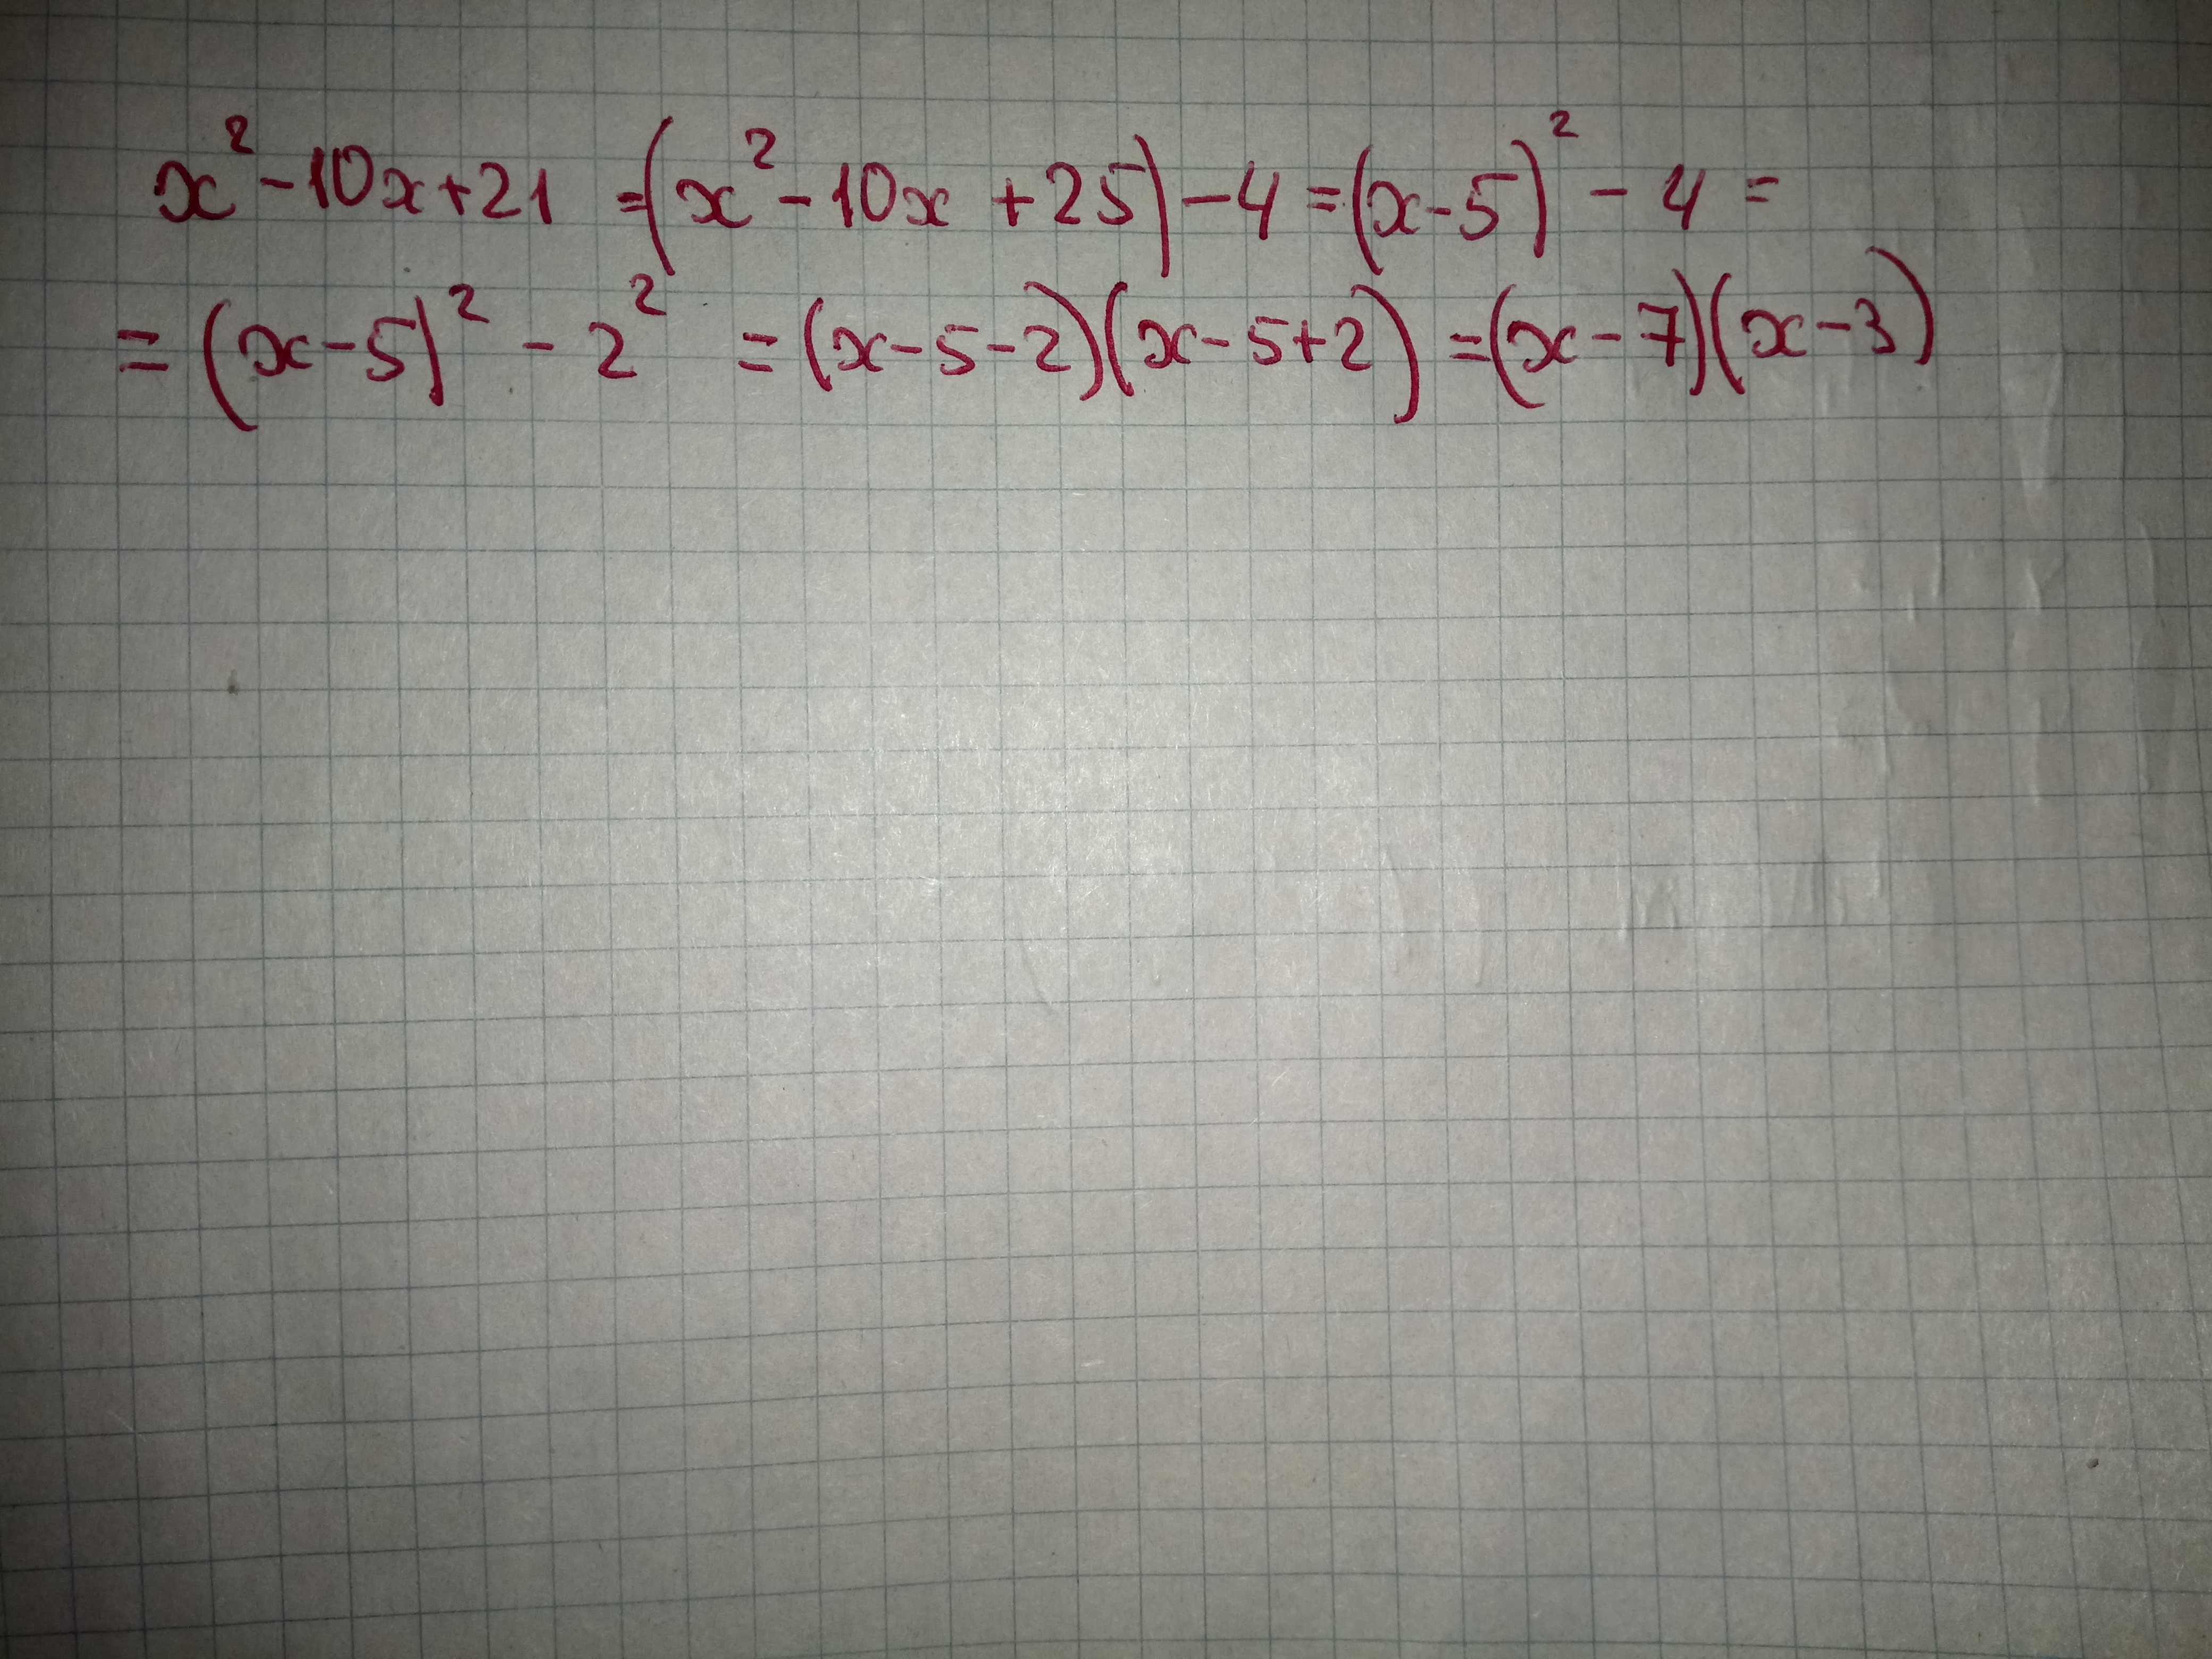 x² - 10x + 21 = (x² - 10x + 25) - 4 = (x - 5)² - 4 =
= (x - 5)² - 2² = (x - 5 - 2)(x - 5 + 2) = (x - 7)(x - 3)